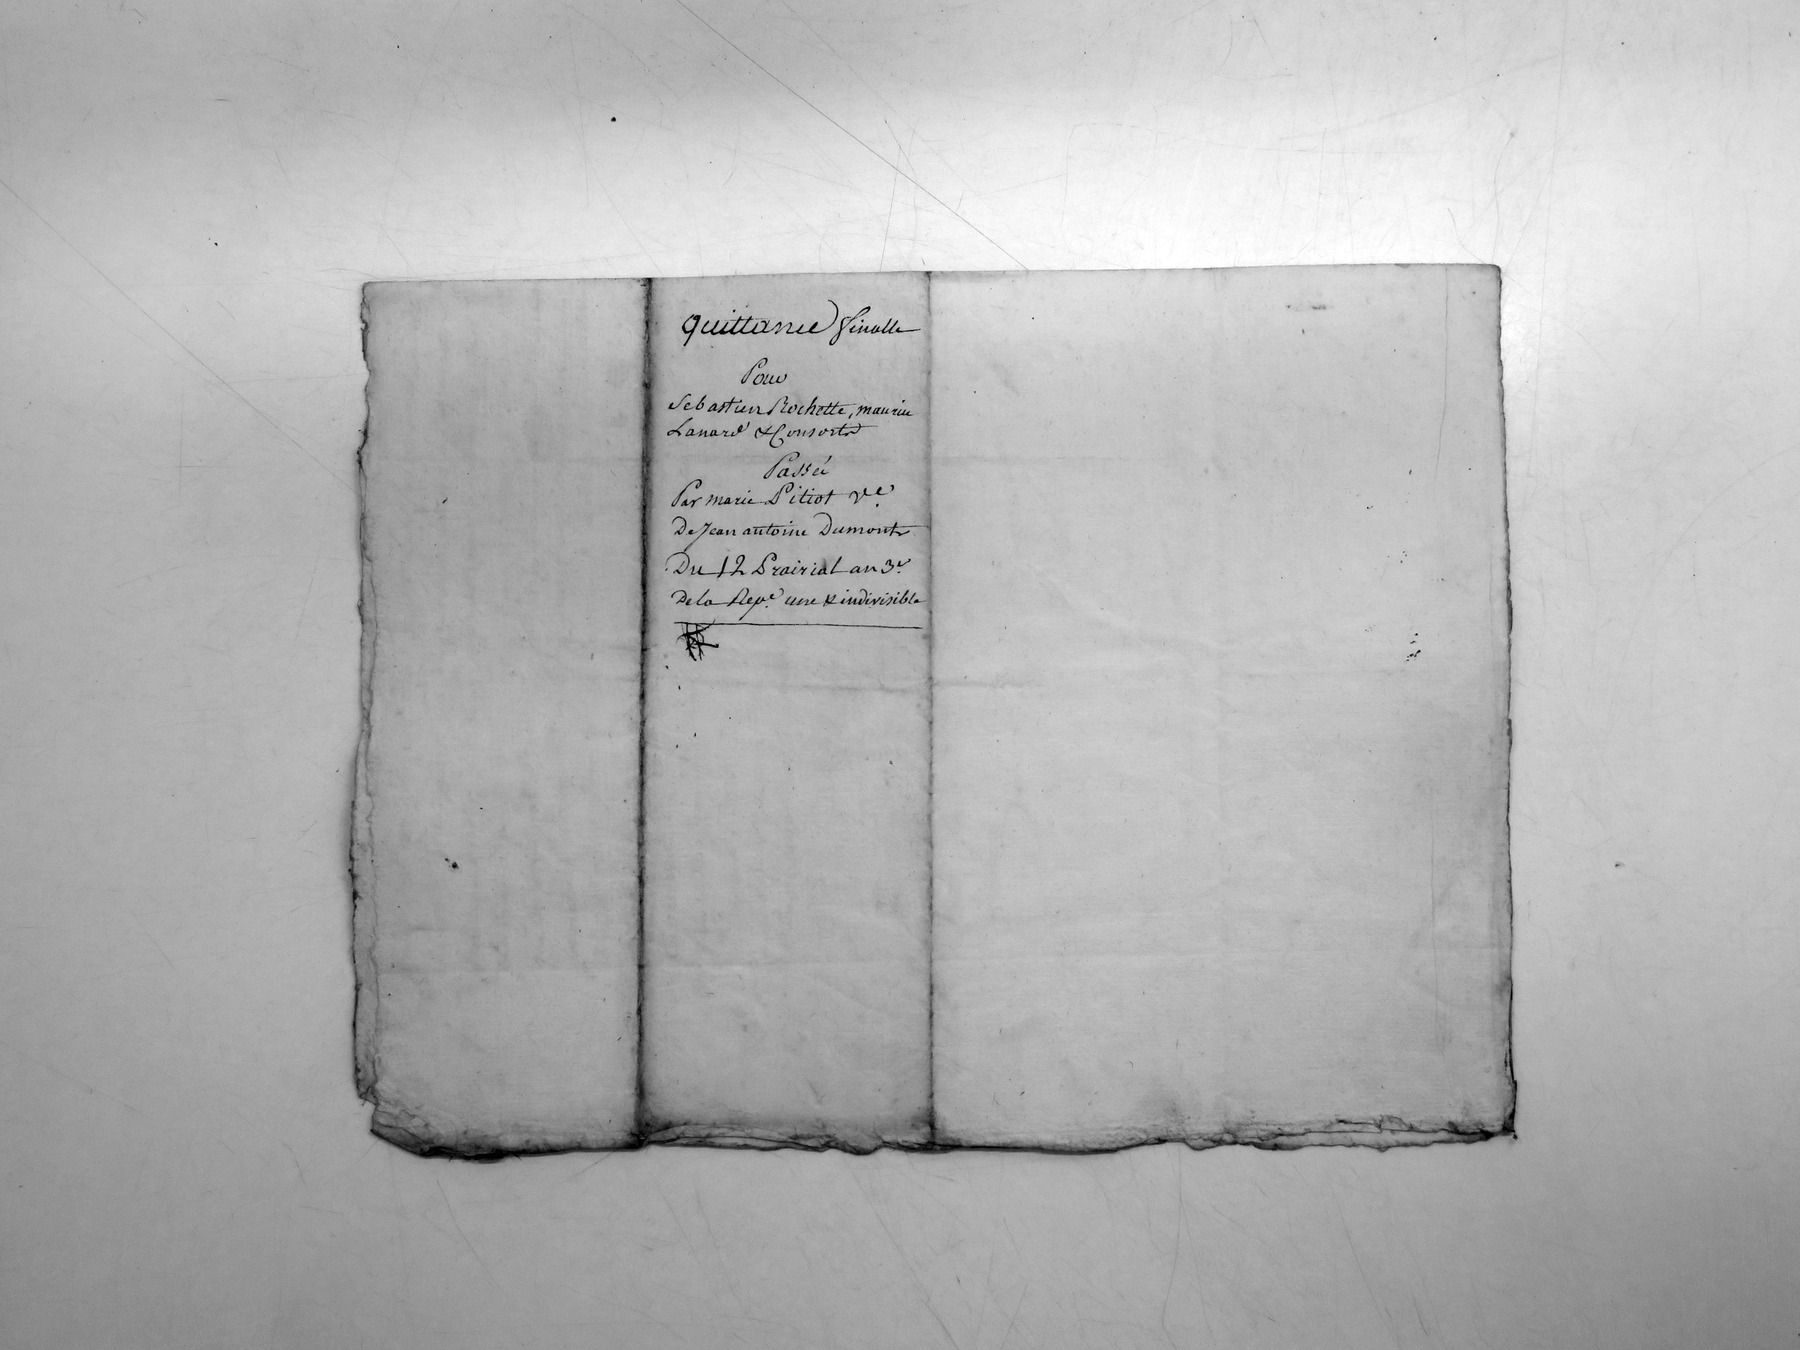 quittance finalle
Pour
Sebastien Rochette, maurice
Lanard & Consorts
Passée
Par marie Pitiot v.e
De Jean antoine Dumont
Du 12 Prairial an 3.e
De la Rep.e une & indivisible